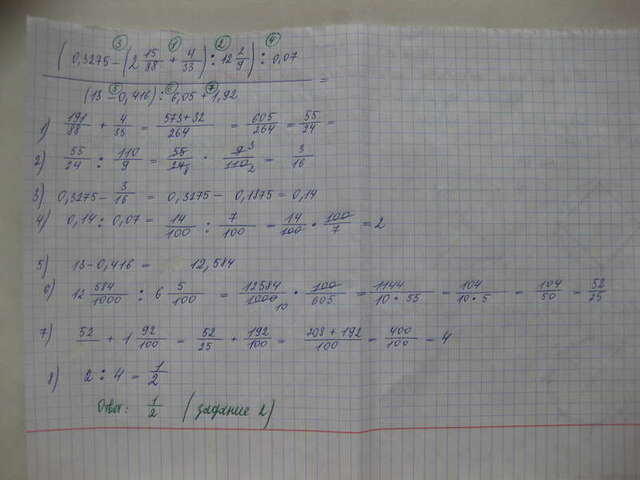 ③ ① ② ④
(0,3275 - (2 15/88 + 4/33) : 12 2/9) : 0,07
=
(13 - 0,416) : 6,05 + 1,92
⑤ ⑥ ⑦
1) 191/88 + 4/33 = 573+32/264 = 605/264 = 55/24 =
2) 55/24 : 110/9 = 55/24 8 · 9 3/110 2 = 3/16
3) 0,3275 - 3/16 = 0,3275 - 0,1875 = 0,14
4) 0,14 : 0,07 = 14/100 : 7/100 = 14/100 · 100/7 = 2
5) 13 - 0,416 = 12,584
6) 12 584/1000 : 6 5/100 = 12584/1000 10 · 100/605 = 1144/10 · 55 = 104/10 · 5 = 104/50 = 52/25
7) 52 + 1 92/100 = 52/25 + 192/100 = 208 + 192/100 = 400/100 = 4
8) 2 : 4 = 1/2
Ответ: 1/2 (задание 2)